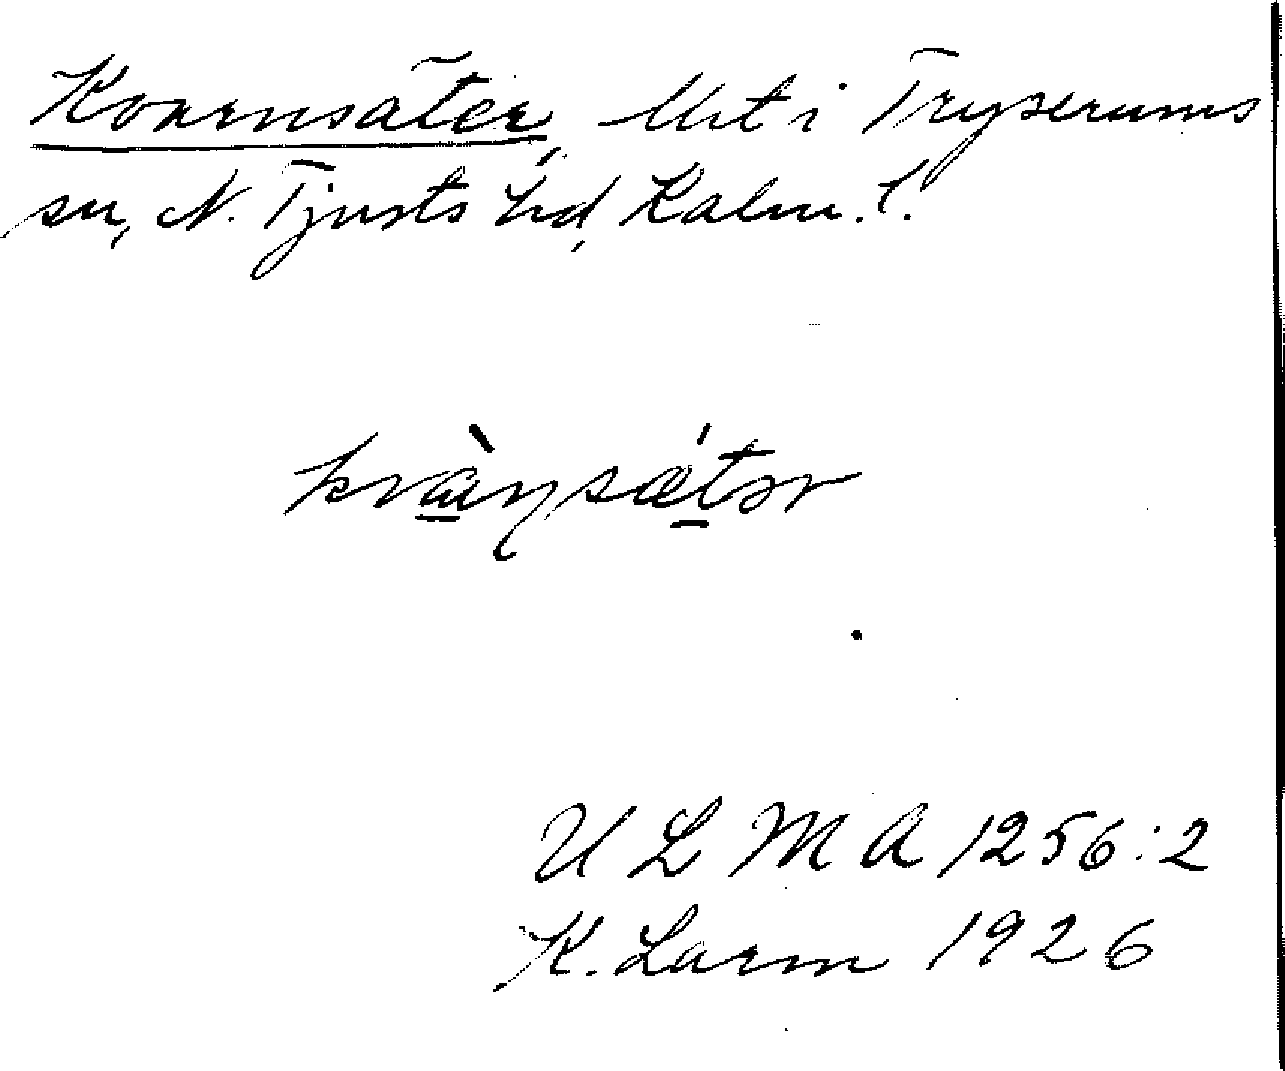 Kvarnsäter, i Tryserums
sn, N. Tjusts hd, Kalm. l.
kvàɳsǽtər
U L M A 1256:2
K. Larm 1926